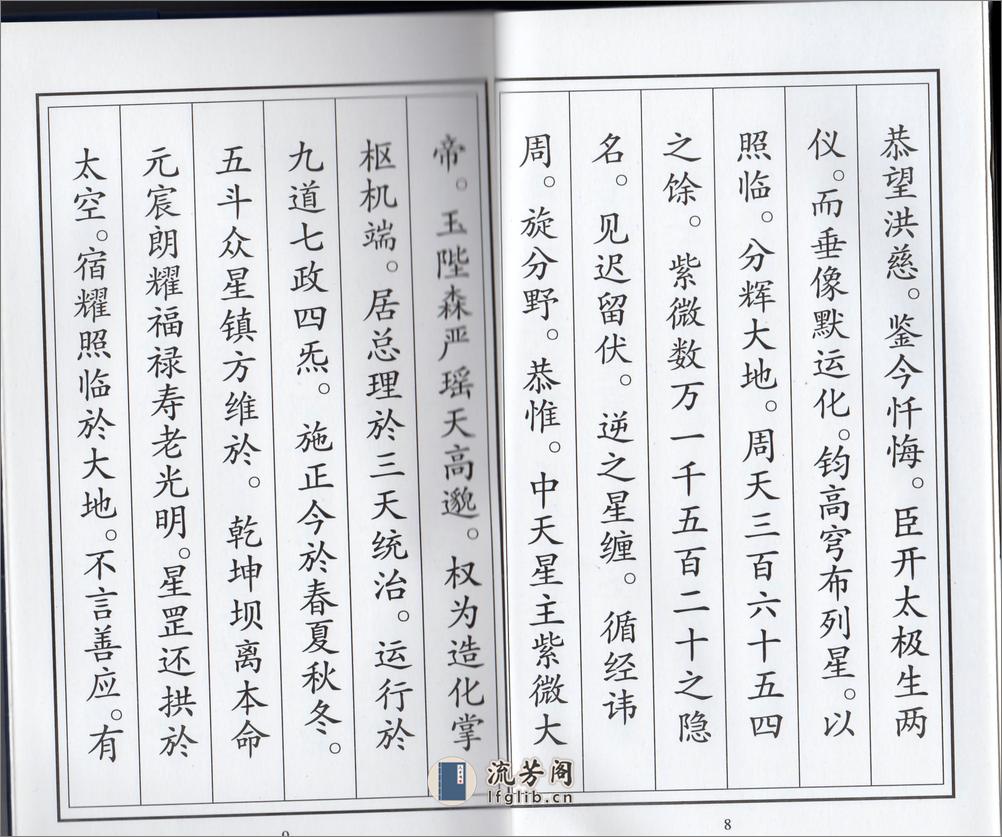 恭望洪慈。鉴今忏悔。臣开太极生两
仪。而垂像默运化。钧高穹布列星。以
照临。分辉大地。周天三百六十五四
之馀。紫微数万一千五百二十之隐
名。见迟留伏。逆之星缠。循经讳
周。旋分野。恭惟。中天星主紫微大
8
帝。玉陛森严瑶天高邈。权为造化掌
枢机端。居总理於三天统治。运行於
九道七政四炁。施正今於春夏秋冬。
五斗众星镇方维於。乾坤坝离本命
元宸朗耀福禄寿老光明。星罡还拱於
太空。宿耀照临於大地。不言善应。有
9
流芳阁
lfglib.cn